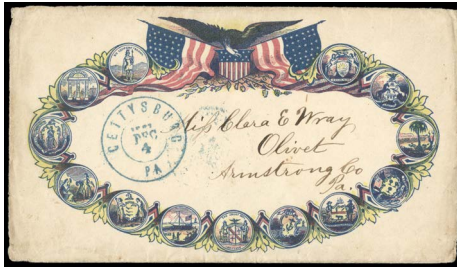 GETTYSBURG
DEC
4
PA
Miss Clara E Wray
Olivet
Armstrong Co
Pa.